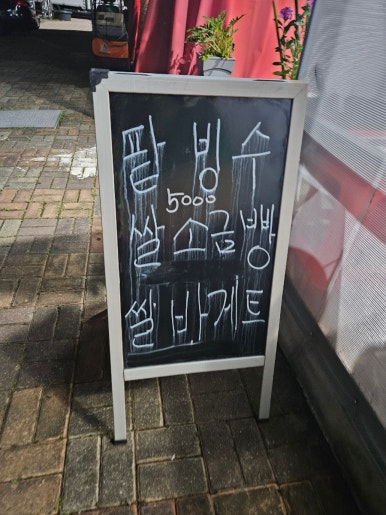 팥 빙수
5000
쌀 소금빵
쌀 바게트